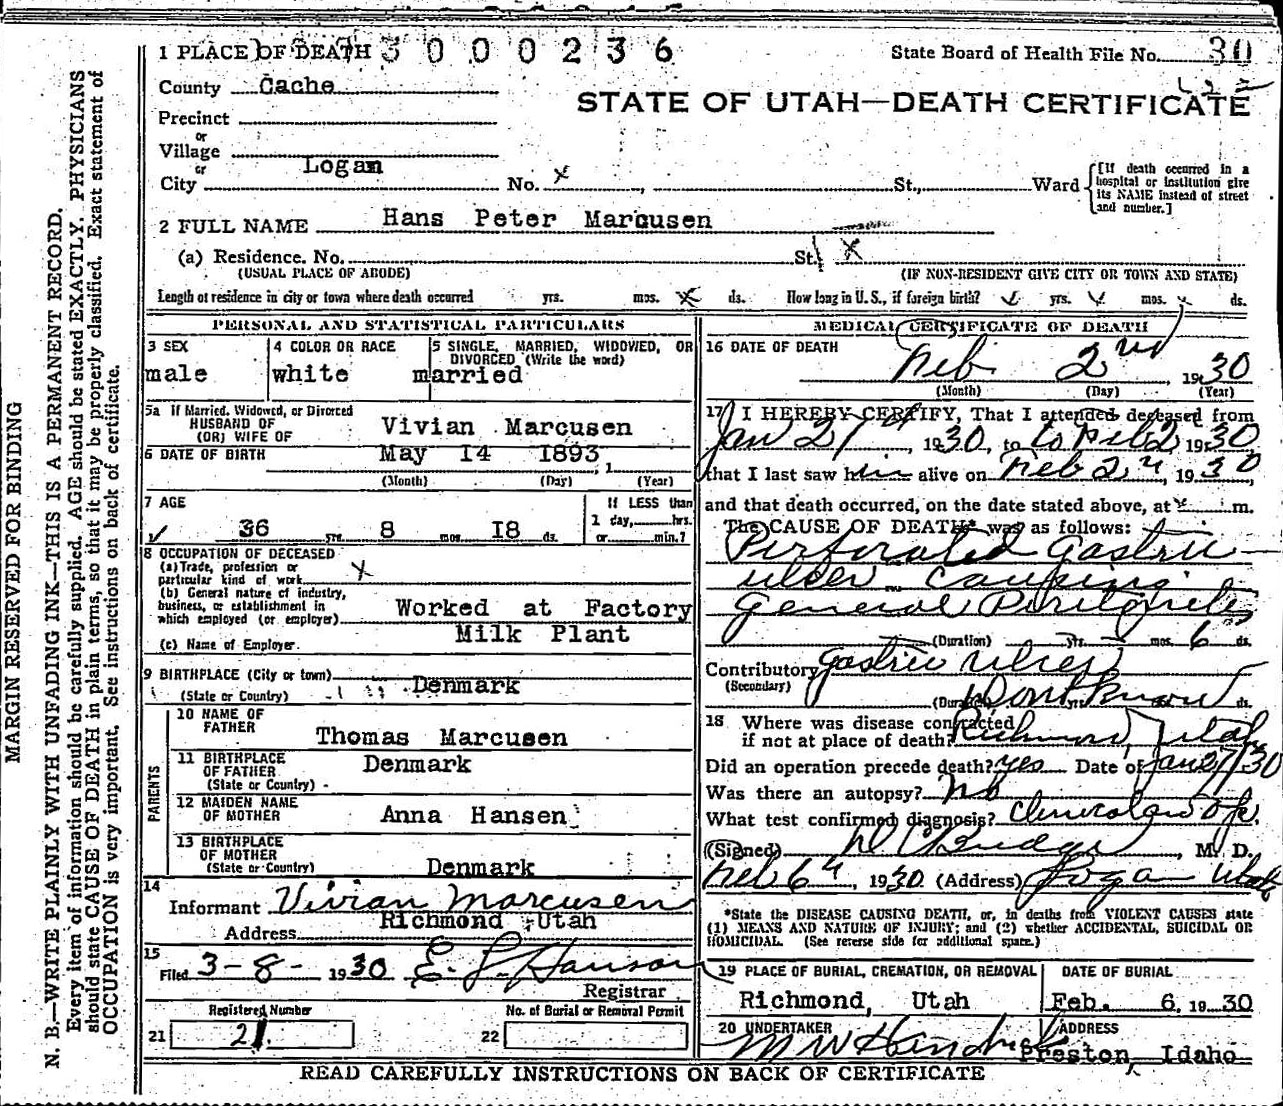 MARGIN RESERVED FOR BINDING
N. B.—WRITE PLAINLY WITH UNFADING INK—THIS IS A PERMANENT RECORD.
Every item of information should be carefully supplied. AGE should be stated EXACTLY. PHYSICIANS
should state CAUSE OF DEATH in plain terms, so that it may be properly classified. Exact statement of
OCCUPATION is very important. See instructions on back of certificate.
1 PLACE OF DEATH 3000236 State Board of Health File No. 30
County Cache
STATE OF UTAH—DEATH CERTIFICATE
Precinct
or
Village
or
City Logan No. x St., Ward
[If death occurred in a
hospital or institution give
its NAME instead of street
and number.]
2 FULL NAME Hans Peter Marcusen
(a) Residence. No. St. x
(USUAL PLACE OF ABODE) (IF NON-RESIDENT GIVE CITY OR TOWN AND STATE)
Length of residence in city or town where death occurred yrs. mos. x ds. How long in U. S., if foreign birth? yrs. mos. ds.
PERSONAL AND STATISTICAL PARTICULARS
3 SEX 4 COLOR OR RACE 5 SINGLE, MARRIED, WIDOWED, OR
DIVORCED (Write the word)
male white married
5a If Married, Widowed, or Divorced
HUSBAND OF
(OR) WIFE OF Vivian Marcusen
6 DATE OF BIRTH May 14 1893, 1
(Month) (Day) (Year)
7 AGE If LESS than
1 day, hrs.
36 yrs. 8 mos. 18 ds. or min.?
8 OCCUPATION OF DECEASED
(a) Trade, profession or
particular kind of work x
(b) General nature of industry,
business, or establishment in
which employed (or employer) Worked at Factory
Milk Plant
(c) Name of Employer
9 BIRTHPLACE (City or town)
(State or Country) Denmark
PARENTS
10 NAME OF
FATHER Thomas Marcusen
11 BIRTHPLACE
OF FATHER Denmark
(State or Country)
12 MAIDEN NAME
OF MOTHER Anna Hansen
13 BIRTHPLACE
OF MOTHER
(State or Country) Denmark
14
Informant Vivian Marcusen
Address Richmond Utah
15
Filed 3-8- 1930 E. L. Hanson
Registrar
Registered Number No. of Burial or Removal Permit
21 21. 22
MEDICAL CERTIFICATE OF DEATH
16 DATE OF DEATH
Feb 2nd, 1930
(Month) (Day) (Year)
17 I HEREBY CERTIFY, That I attended deceased from
Jan 27th 1930, to to Feb 2 1930
that I last saw him alive on Feb 2nd, 1930
and that death occurred, on the date stated above, at m.
The CAUSE OF DEATH* was as follows:
Perforated Gastric
ulcer causing
General Peritonitis
(Duration) yrs. mos. 6 ds.
Contributory Gastric Ulcer
(Secondary)
(Duration) Dont know yrs. mos. ds.
18 Where was disease contracted
if not at place of death? Richmond, Utah
Did an operation precede death? yes Date of Jan 27/30
Was there an autopsy? No
What test confirmed diagnosis?
(Signed) D C Budge, M. D.
Feb 6th, 1930 (Address) Logan Utah
*State the DISEASE CAUSING DEATH, or, in deaths from VIOLENT CAUSES state
(1) MEANS AND NATURE OF INJURY; and (2) whether ACCIDENTAL, SUICIDAL OR
HOMICIDAL. (See reverse side for additional space.)
19 PLACE OF BURIAL, CREMATION, OR REMOVAL DATE OF BURIAL
Richmond, Utah Feb. 6, 1930
20 UNDERTAKER ADDRESS
M W Hendricks Preston, Idaho
READ CAREFULLY INSTRUCTIONS ON BACK OF CERTIFICATE